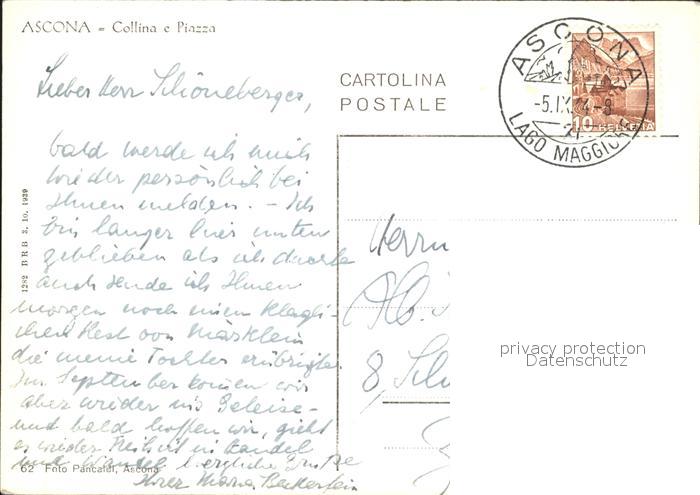 ASCONA - Collina e Piazza
Lieber Herr Schöneberger,
bald werde ich mich
wieder persönlich bei
Ihnen melden. - Ich
bin länger hier unten
geblieben als ich dachte
auch sende ich Ihnen
morgen noch einen kläg-
lichen Rest von Märklein
die meine Tochter erübrigte.
Im September kommen wir
aber wieder ins Geleise -
und bald hoffen wir, gieht
es wieder Freiheit in Handel
und Wandel herzliche Grüsse
Ihrer Maria
62 Foto Pancaldi, Ascona
1282 BRB 3. 10. 1939
CARTOLINA
POSTALE
ASCONA
-5.IX.44-8
LAGO MAGGIORE
10 HELVETIA
Herrn
8,
privacy protection
Datenschutz